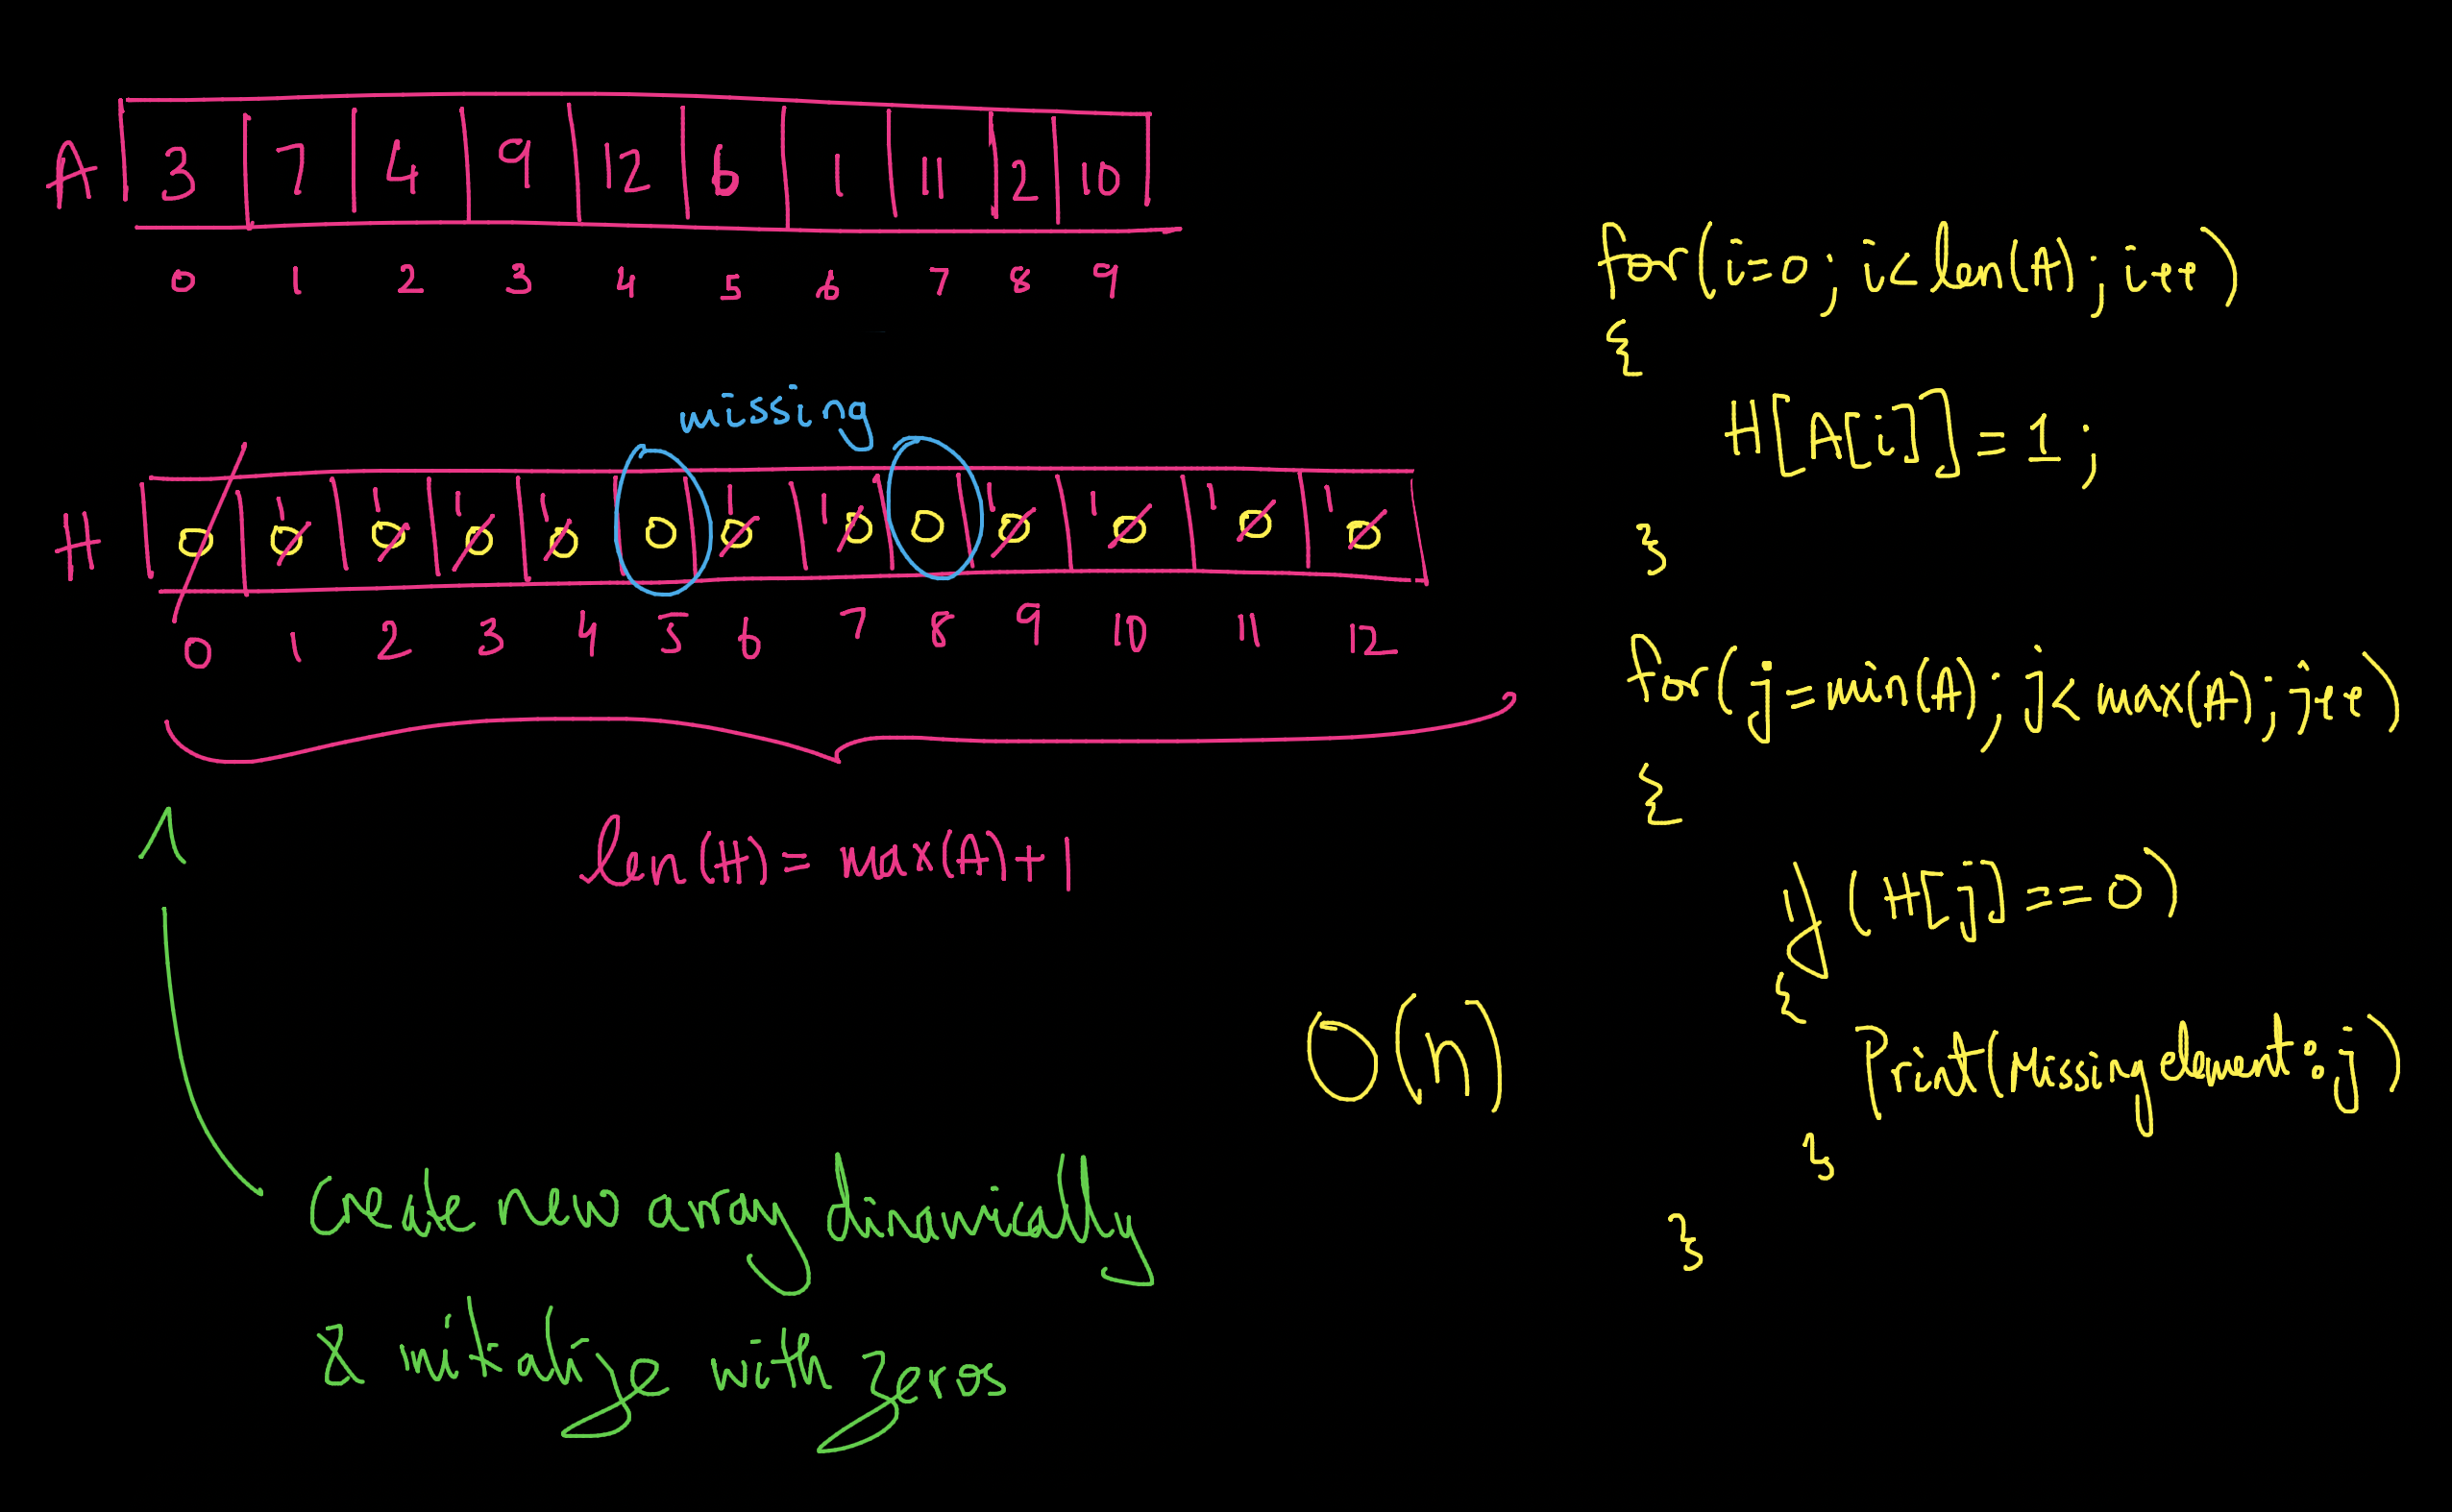 A 3 7 4 9 12 6 1 11 2 10
0 1 2 3 4 5 6 7 8 9
missing
H 0 0 0 0 0 0 0 0 0 0 0 0 0
1 1 1 1 1 1 1 1 1 1
0 1 2 3 4 5 6 7 8 9 10 11 12
len(H) = max(A)+1
Create new array dinamically
& initialize with zeros
O(n)
for(i=0; i<len(A); i++)
{
H[A[i]] = 1;
}
for(j=min(A); j<max(A); j++)
{
if (H[j] == 0)
{
Print(Missing element: j)
}
}